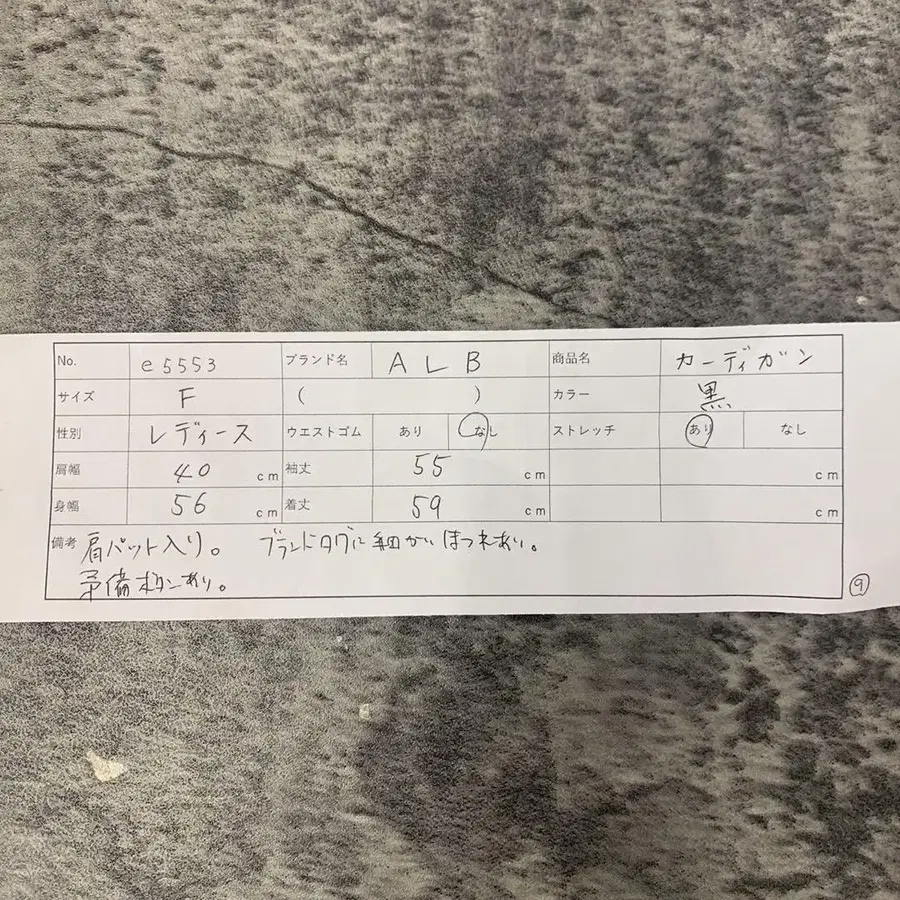 No. e5553 ブランド名 ALB 商品名 カーディガン
サイズ F ( ) カラー 黒
性別 レディース ウエストゴム あり なし ストレッチ あり なし
肩幅 40 cm 袖丈 55 cm cm
身幅 56 cm 着丈 59 cm cm
備考 肩パット入り。 ブランドタグに細かいほつれあり。
予備ボタンあり。
9